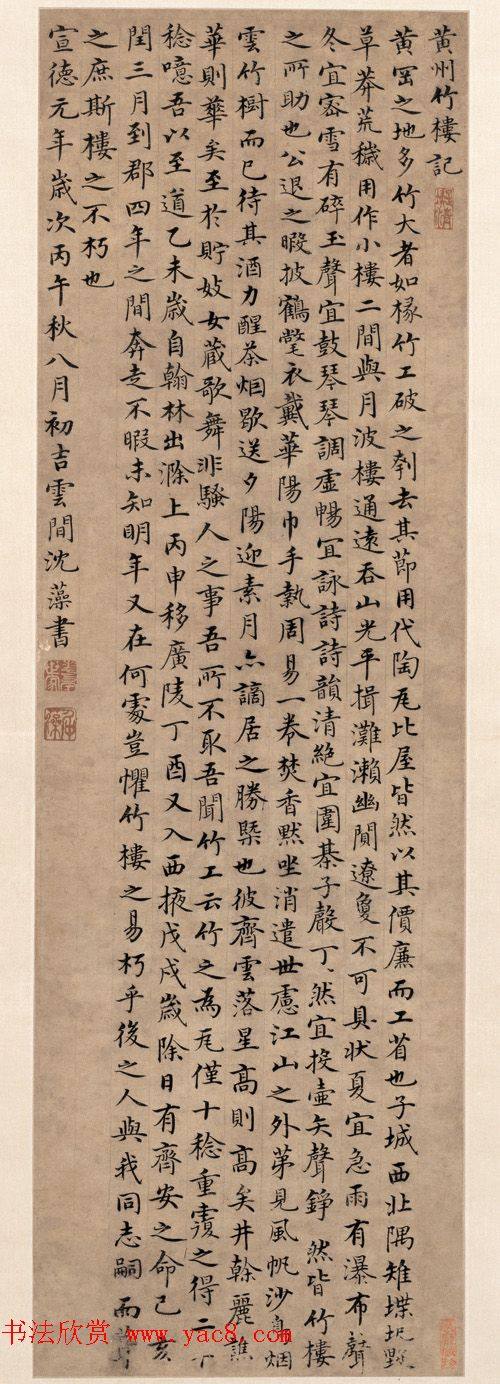 黄州竹樓記
黄罡之地多竹大者如椽竹工破之刳去其節用代陶瓦比屋皆然以其價廉而工省也子城西北隅雉堞圮毀
草莽荒穢用作小樓二間與月波樓通遠吞山光平揖灘瀨幽閴遼夐不可具狀夏宜急雨有瀑布聲
冬宜密雪有碎玉聲宜鼓琴琴調虛暢宜詠詩詩韻清絶宜圍棊子聲丁丶然宜投壷矢聲錚然皆竹樓
之所助也公退之暇披鶴氅衣戴華陽巾手執周易一卷焚香黙坐消遣世慮江山之外苐見風帆沙鳥烟
雲竹樹而已待其酒力醒茶烟歇送夕陽迎素月亦謫居之勝槩也彼齊雲落星髙則髙矣井榦麗譙
華則華矣至於貯妓女蔵歌舞非騷人之事吾所不取吾聞竹工云竹之為瓦僅十稔重覆之得二十
稔噫吾以至道乙未歲自翰林出滁上丙申移廣陵丁酉又入西掖戊戌歲除日有齊安之命己亥
閏三月到郡四年之間奔走不暇未知明年又在何處豈懼竹樓之易朽乎後之人與我同志嗣而葺
之庶斯樓之不朽也
宣德元年歲次丙午秋八月初吉雲間沈藻書
书法欣赏 www.yac8.com